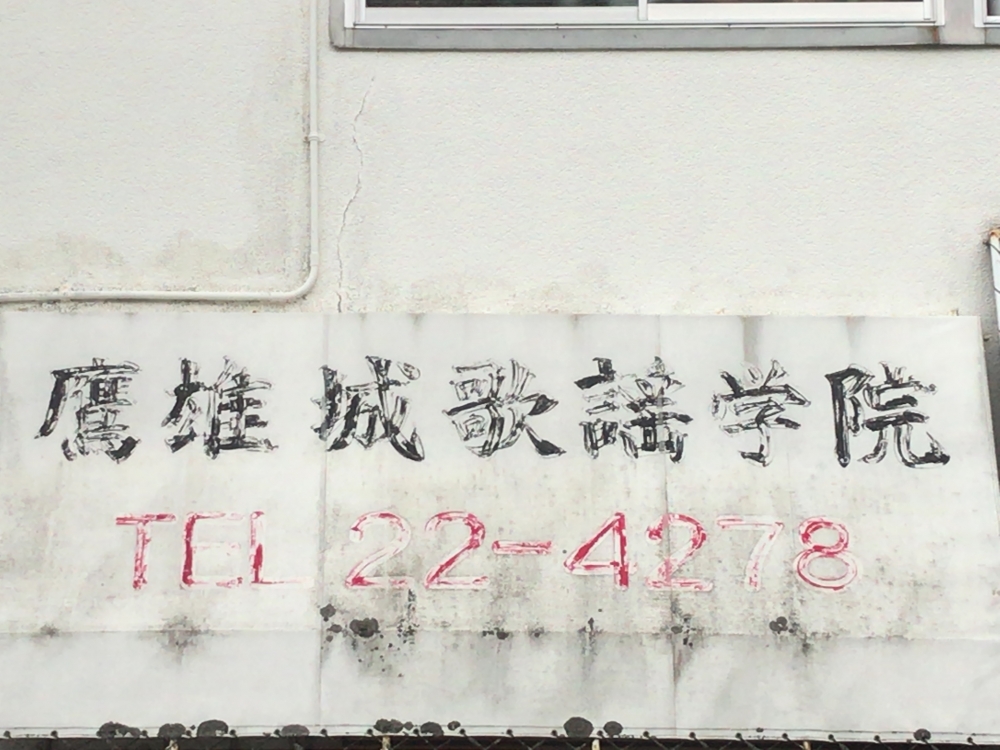 鷹雄城歌謡学院
TEL 22-4278